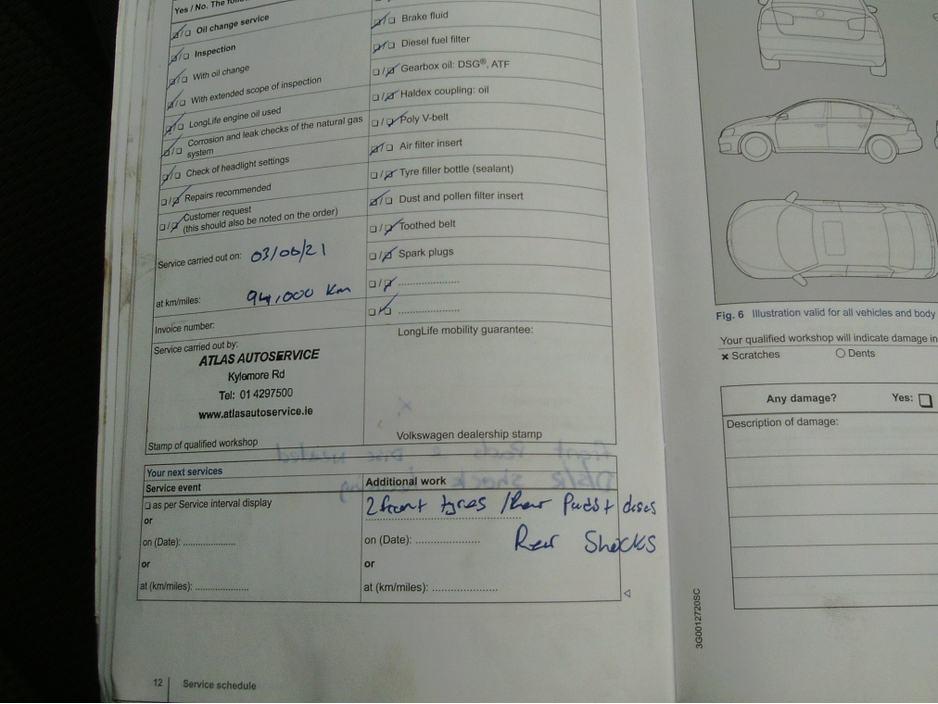 Yes / No. The
Oil change service
Inspection
With oil change
With extended scope of inspection
LongLife engine oil used
Corrosion and leak checks of the natural gas
system
Check of headlight settings
Repairs recommended
Customer request
(this should also be noted on the order)
Service carried out on: 03/06/21
at km/miles: 94,000 Km
Invoice number:
Service carried out by:
ATLAS AUTOSERVICE
Kylemore Rd
Tel: 01 4297500
www.atlasautoservice.ie
Stamp of qualified workshop
Brake fluid
Diesel fuel filter
Gearbox oil: DSG®, ATF
Haldex coupling: oil
Poly V-belt
Air filter insert
Tyre filler bottle (sealant)
Dust and pollen filter insert
Toothed belt
Spark plugs
LongLife mobility guarantee:
Volkswagen dealership stamp
Your next services
Service event
as per Service interval display
or
on (Date):
or
at (km/miles):
Additional work
2 front tyres / Rear Pads + discs
Rear Shocks
on (Date):
or
at (km/miles):
12 Service schedule
Fig. 6 Illustration valid for all vehicles and body
Your qualified workshop will indicate damage in
x Scratches O Dents
Any damage? Yes:
Description of damage:
3G0012720SC